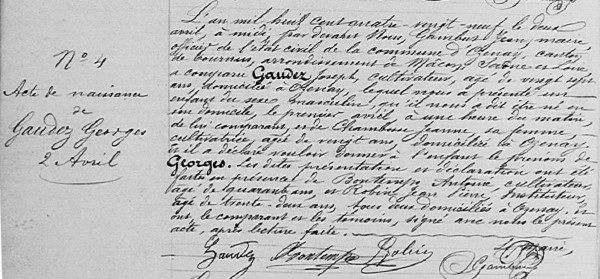 N° 4
Acte de naissance
de
Gaudez Georges
2 Avril
L'an mil huit cent quatre vingt neuf, le deux
avril, à midi, par devant Nous, Gambut Jean, maire,
officier de l'état civil de la commune d'Ozenay, canton
de Tournus, arrondissement de Mâcon, Saône et Loire
a comparu Gaudez Joseph, cultivateur, âgé de vingt sept
ans, domicilié à Ozenay, lequel nous a présenté un
enfant du sexe masculin, qu'il nous a dit être né en
son domicile, le premier avril, à une heure du matin,
de lui comparant, et de Chambosse Jeanne, sa femme,
cultivatrice, âgée de vingt ans, domiciliée à Ozenay,
et il a déclaré vouloir donner à l'enfant le prénom de
Georges. Les dites présentation et déclaration ont été
faites en présence de Bontemps Antoine, cultivateur,
âgé de quarante ans, et Robin Jean Pierre, Instituteur,
âgé de trente-deux ans, tous deux domiciliés à Ozenay. Et
ont, le comparant et les témoins, signé avec nous le présent
acte, après lecture faite.
Gaudez Bontemps Robin
Le maire,
Gambut